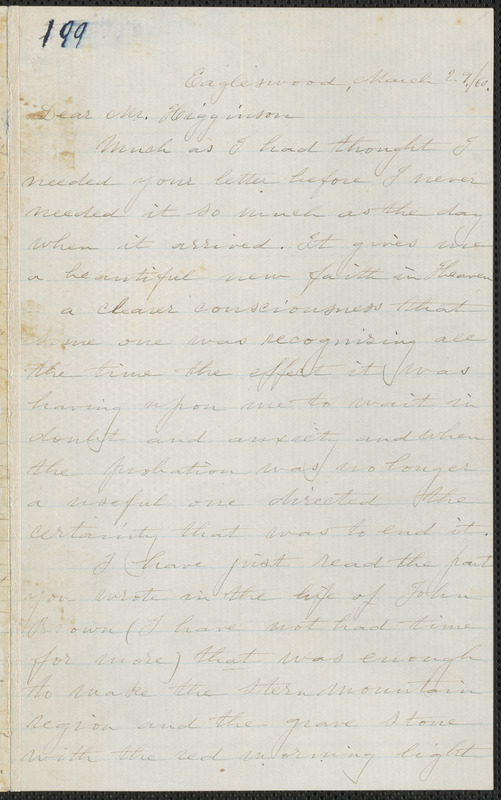 199
Eagleswood, March 27./60.
Dear Mr. Higginson
Much as I had thought I
needed your letter before I never
needed it so much as the day
when it arrived. It gives me
a beautiful new faith in Heaven
a clearer consciousness that
some one was recognizing all
the time the effect it was
having upon me to wait in
doubt and anxiety and when
the probation was no longer
a useful one directed the
certainty that was to end it.
I have just read the part
you wrote in the life of John
Brown (I have not had time
for more) that was enough
to make the stern mountain
region and the grave stone
with the red morning light